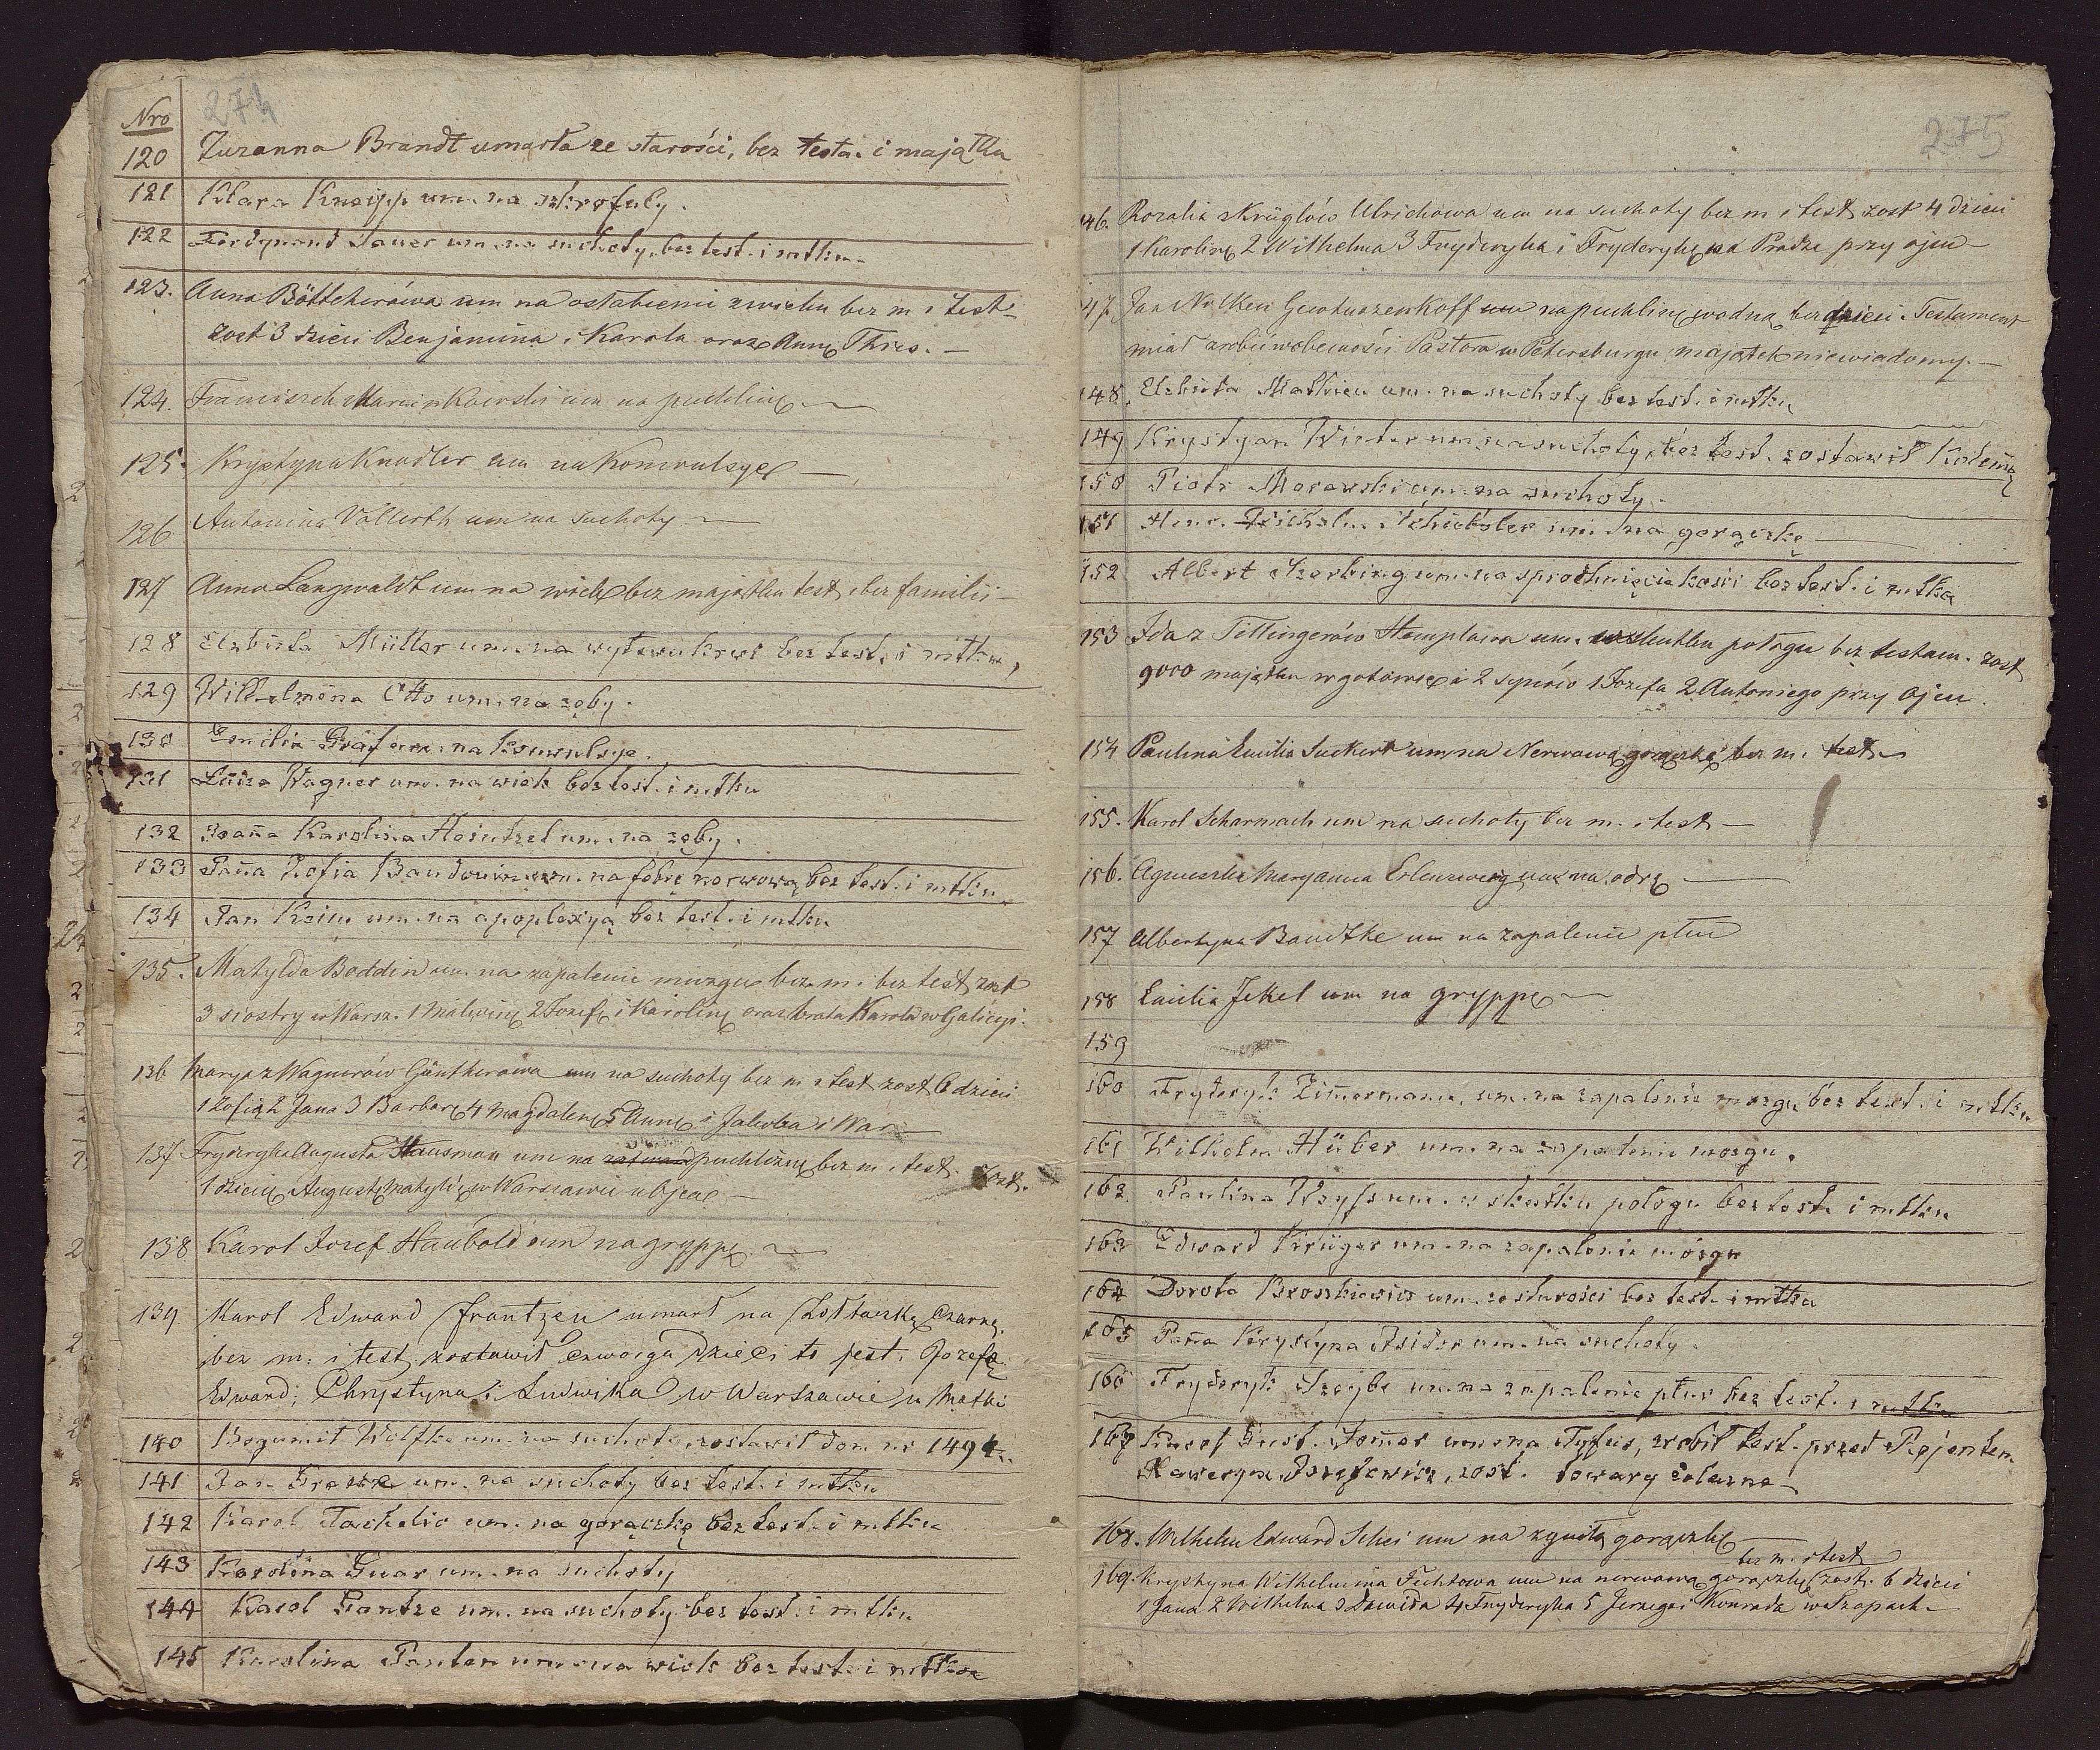 274
Nro
120 Zuzanna Brandt umarła ze starości, bez testa. i majątku
121 Klara Kneipp um. na skrofuly.
122 Ferdynand Sauer um. na suchoty, bez test. i mtku.
123. Anna Böttcherówa um na osłabienie z wieku bez m. i test.
zost 3 dzieci Benjamina, Karola oraz Annę Thies. —
124. Franciszek Marcinkowski um na puchlinę —
125. Krystyna Knodler um na Konwulsye —
126 Antonina Vollerth um na suchoty —
127 Anna Langwaldt um na wiek bez majątku test, i bez familii —
128 Elzbieta Müller um. na wyływ krwi bez test. i mtku,
129 Wilhelmina Otto um. na zęby.
130 Emilia Gräf um. na konwulsye.
131 Luiza Wagner um. na wiek bez test. i mtku
132 Joanna Karolina Heintzel um. na zęby.
133 Pana Zofia Baudouin um. na febrę nerwową bez test. i mtku
134 Jan Keiu um. na apoplexyą bez test. i mtku
135. Matylda Boddin um. na zapalenie muzgu bez. m. bez test, zost
3 siostry w Warsz. 1 Malwinę 2 Jozefę i Karolinę oraz brata Karola w Galicyi.
136 Marya z Wagnerów Güntherowa um na suchoty bez m i test zost 6 dzieci
1 Zofią 2 Jana 3 Barbarę 4 Magdalenę 5 Annę i Jakoba i War
137 Fryderyka Augusta Hausman um na puchliznę bez m. i test. zost.
1 dziecię Augustę Matyldę w Warszawie u ojca —
138 Karol Jozef Haubold um na gryppę. —
139 Karol Edward Frantzen umarł na Żołtaczkę Czarną.
bez m: i test, zostawił Czworga Dzieci to jest: Jozefa
Edward; Chrystyna i Ludwika w Warszawie u Matki
140 Bogumił Wölfke um. na suchoty, zostawił dom nr 1494.
141 Jan Grosze um. na suchoty bez test. i mtku
142 Karol Tackelio um. na gorączkę bez test. i mtku
143 Karolina Guar um. na suchoty
144 Karol Gantze um. na suchoty bez test. i mtku
145 Karolina Panten um. na wiek bez test. i mtku
275
146. Rozalia z Krüglów Ulrichowa um na suchoty bez m i test, zost 4 dzieci
1 Karolinę 2 Wilhelma 3 Fryderyka i Fryderykę na Pradze przy ojcu —
47. Jan um na puchlinę wodną bez dzieci. Testament
miał zrobić w obecności Pastora w Petersburgu, majątek niewiadomy. —
148. Elzbieta Mathieu um. na suchoty bez test. i mtku
149 Krystyan Winter um. na suchoty, bez test. zostawił
150 Piotr Morawski um. na suchoty.
151 Henr. um. na gorączkę —
152 Albert Szerbing um. na spróchnięcie kości bez test. i mtku
153 Ida z Tillingerów Hemplowa um. w skutku połogu bez testam. zost
9000 majątku w gotówce i 2 synów 1 Jozefa 2 Antoniego przy ojcu.
154 Paulina Emilia Suckert um na Nerwową gorączkę bez m. test
155. Karol Scharmach um na suchoty bez m. i test —
156. Agnieszka Maryanna Erlenzweig um na odrę —
157 Albertyna Bandtke um na zapalenie płuc
158 Emilia Jekel um na gryppę —
159
160 Fryderyk Zimermann, um. na zapalenie mozgu bez test. i mtku
161 Wilhelm Hüber um. na zapalenie mozgu.
162. Paulina Weyss um. w skutku połogu bez test. i mtku
163 Edward Krüger um. na zapalenie mózgu
164 Dorota Broszkiewicz um. ze starości bez test. i mtku
165 Pana Krystyna Isider um. na suchoty.
166 Fryderyk Szeybe um. na zapalenie płuc bez test. i mtku
167 Karol Gust. Tomas um. na Tyfus, zrobił test. przed Rejentem
Xawerym Jozefowicz, zost. towary żelazne —
168. Wilhelm Edward Schei um na zgniłą gorączkę —
bez m. i test
169. Krystyna Wilhelmina Fichtowa um na nerwową gorączkę (zost. 6 dzieci
1 Jana 2 Wilhelma 3 Dawida 4 Fryderyka 5 Jerzego i Konrada w Szopach —